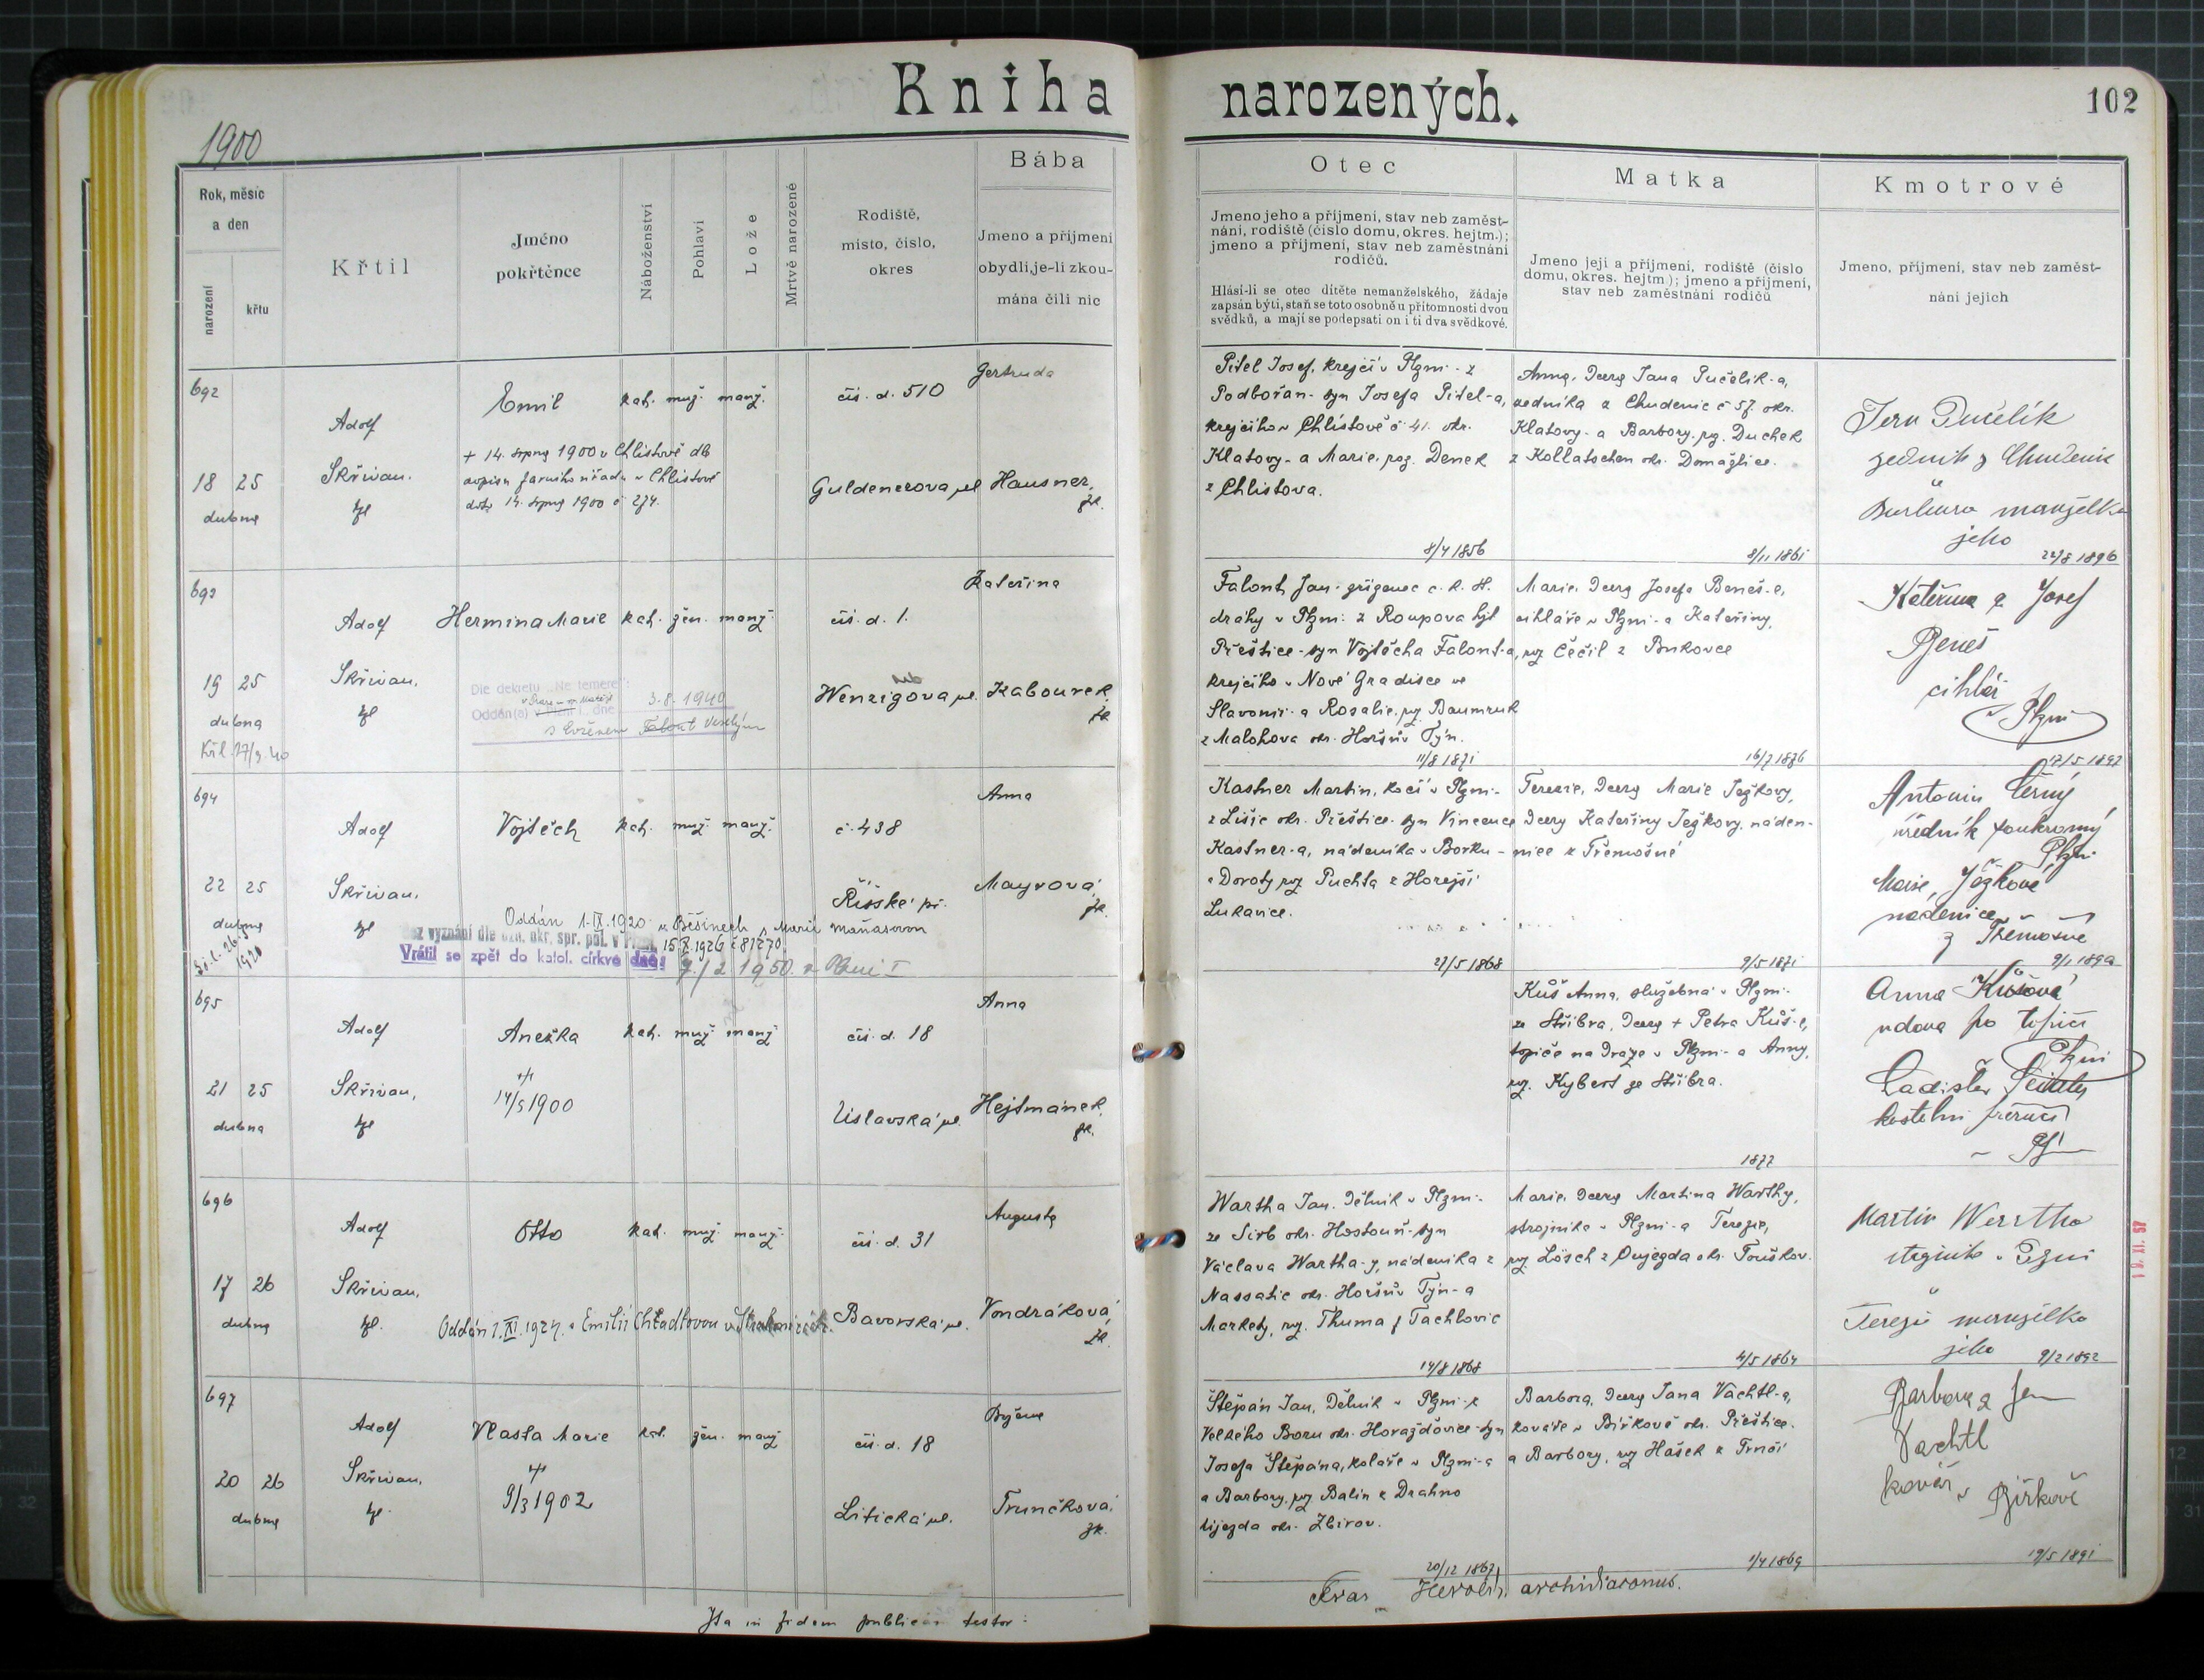 Kniha narozených.
102
1900
Rok, měsíc
a den
narození
křtu
Křtil
Jméno
pokřtěnce
Náboženství
Pohlaví
Lože
Mrtvě narozené
Rodiště,
místo, číslo,
okres
Bába
Jmeno a příjmení
obydlí, je-li zkou-
mána čili nic
Otec
Jmeno jeho a příjmení, stav neb zaměst-
nání, rodiště (číslo domu, okres. hejtm.);
jmeno a příjmení, stav neb zaměstnání
rodičů.
Hlásí-li se otec dítěte nemanželského, žádaje
zapsán býti, staň se toto osobně u přítomnosti dvou
svědků, a mají se podepsati on i ti dva svědkové.
Matka
Jmeno její a příjmení, rodiště (číslo
domu, okres. hejtm.); jmeno a příjmení,
stav neb zaměstnání rodičů
Kmotrové
Jmeno, příjmení, stav neb zaměst-
nání jejich
692
18 25
dubna
Adolf
Skřivan,
kpl
Emil
+ 14. srpna 1900 v Chlistově dle
dto 14. srpna 1900 č 274.
kat. muž. manž.
čís. d. 510
Guldenerova ul.
Gertruda
Hausner,
zk.
Pitel Josef, krejčí v Plzni - z
Podbořan - syn Josefa Pitel-a,
krejčího v Chlistově č 41. okr.
Klatovy - a Marie, roz. Denek
z Chlistova.
8/4 1856
Anna, dcera Jana Pučelík-a,
zedníka z Chudenic č 57. okr.
Klatovy - a Barbory, roz. Duchek
z Kollatschen okr. Domažlice.
8/11 1861
Jan Pučelík
zedník z Chudenic
Barbora manželka
jeho
22/8 1896
693
19 25
dubna
Adolf
Skřivan,
kpl
Hermina Marie
kat. žen. manž.
Dle dekretu „Ne temere":
Oddán(a) dne 3.8.1940
s Evženem Veselým
čís. d. 1.
Wenzigova ul.
Kateřina
Kabourek,
zk
Falont Jan - zřízenec c. k. st.
dráhy v Plzni - z Roupova hjt
Přeštice - syn Vojtěcha Falont-a,
krejčího v Nové Gradisce ve
Slavonii - a Rosalie, roz. Baumruk
z Malohova okr. Horšův Týn.
11/8 1871
Marie, dcera Josefa Beneš-e,
cihláře v Plzni - a Kateřiny,
roz Čečil z Bukovce
16/7 1876
Kateřina a Josef
Beneš
cihlář
v Plzni
17/5 1897
694
22 25
dubna
Adolf
Skřivan,
kpl
Vojtěch
kat. muž. manž.
Oddán 1.IX.1920 v Běšinech s Marií Maňasovou
Bez vyznání dle ozn. okr. spr. pol. v Plzni 15.X.1926 č 81270
Vrátil se zpět do katol. církve dne: 7./2 1950. v Plzni I
č. 438
Říšské př.
Anna
Mayrová,
zk.
Kastner Martin, kočí v Plzni -
z Lišic okr. Přeštice - syn Vincence
Kastner-a, nádeníka v Borku -
a Doroty roz Puchta z Horejší
Lukavice.
27/5 1868
Terezie, dcera Marie Ježkovy,
dcery Kateřiny Ježkovy, náden-
nice z Třemošné
9/5 1871
Antonín Černý
úředník soukromý
Plzni
Marie Ježková
nádenice
z Třemošné
695
21 25
dubna
Adolf
Skřivan,
kpl
Anežka
+
14/5 1900
kat. muž manž
čís. d. 18
Úslavská ul.
Anna
Hejtmánek,
zk.
Kůš Anna, služebná v Plzni -
ze Stříbra, dcera + Petra Kůš-e,
topiče na dráze v Plzni - a Anny,
roz. Kybert ze Stříbra.
1877
Anna Kůšová
vdova po topiči
Plzni
696
17 26
dubna
Adolf
Skřivan,
kpl.
Otto
kat. muž. manž.
Oddán 1.XI.1924. s Emilií Chtadtovou v Strakonicích.
čís. d. 31
Bavorská ul.
Augusta
Vondráková,
zk.
Wartha Jan, dělník v Plzni -
ze Sirb okr. Hostouň - syn
Václava Wartha-y, nádeníka z
Nassatic okr. Horšův Týn - a
Markety, roz. Thuma z Tachlovic
14/8 1868
Marie, dcera Martina Warthy,
strojníka v Plzni - a Terezie,
roz Lösch z Oujezda okr. Touškov.
4/5 1864
Martin Wartha
strojník v Plzni
Terezie manželka
jeho
9/2 1892
697
20 26
dubna
Adolf
Skřivan,
kpl.
Vlasta Marie
+
9/3 1902
kat. žen. manž
čís. d. 18
Litická ul.
Trunčková,
zk.
Štěpán Jan, dělník v Plzni - z
Velkého Boru okr. Horažďovice - syn
Josefa Štěpána, koláře v Plzni - a
a Barbory, roz Balín z Drahno
Újezda okr. Zbirov.
20/12 1867
Barbora, dcera Jana Vachtl-a,
kováře v Biřkově okr. Přeštice.
a Barbory, roz Hašek z Trnčí
1/4 1869
Barbora a Jan
Vachtl
kovář v Biřkově
19/5 1891
Ita in fidem publicam testor:
Herold, archidiaconus.